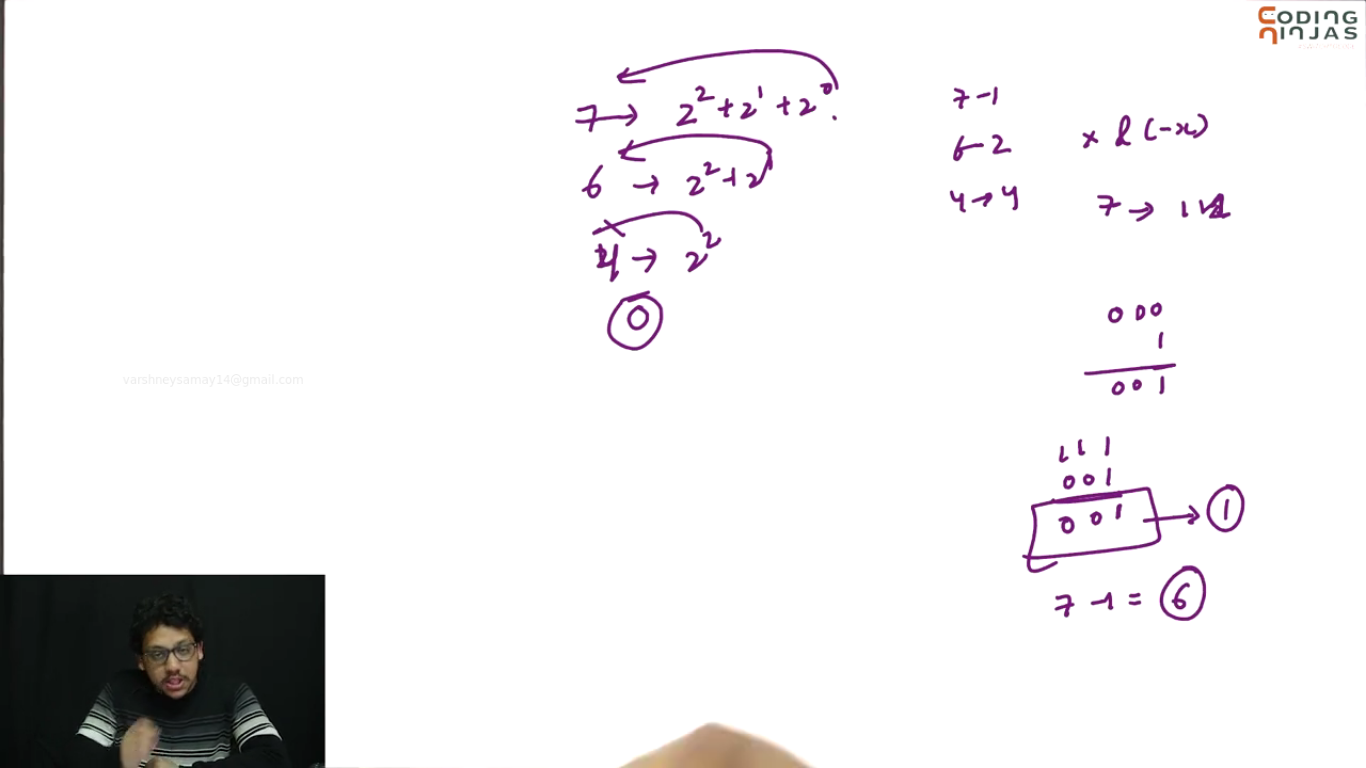 CODING
NINJAS
7 → 2² + 2¹ + 2⁰.
6 → 2² + 2¹
4 → 2²
0
7 - 1
6 - 2
4 → 4
x & (-x)
7 →
0 0 0
1
0 0 1
1 1 1
0 0 1
0 0 1 → 1
7 - 1 = 6
varshneysamay14@gmail.com